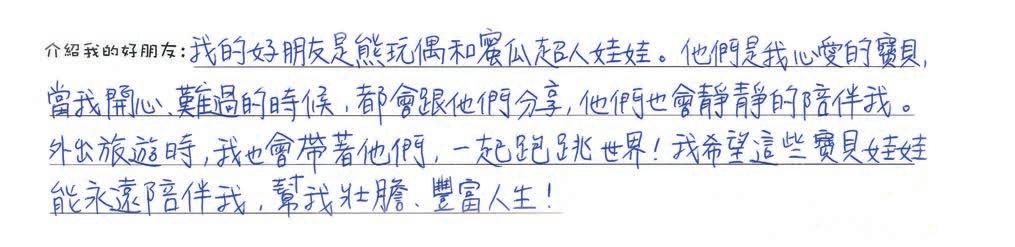 介紹我的好朋友:我的好朋友是熊玩偶和蜜瓜超人娃娃。他們是我心愛的寶貝,
當我開心、難過的時候,都會跟他們分享,他們也會靜靜的陪伴我。
外出旅遊時,我也會帶著他們,一起跑跳世界!我希望這些寶貝娃娃
能永遠陪伴我,幫我壯膽、豐富人生!